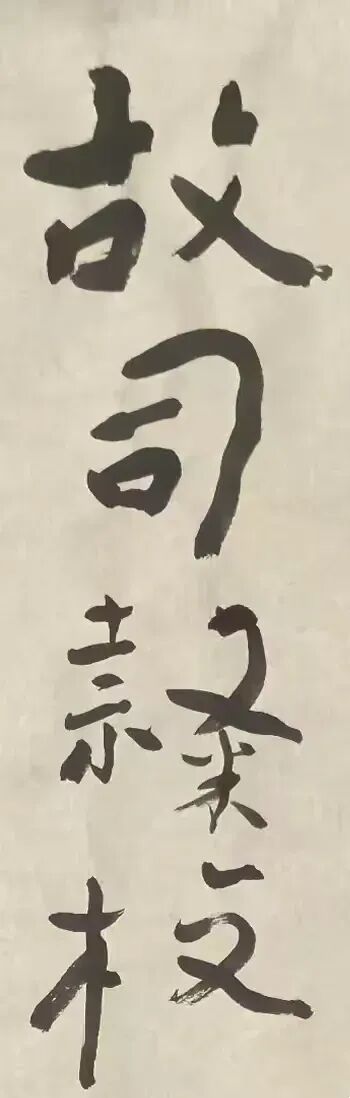 故司隸校